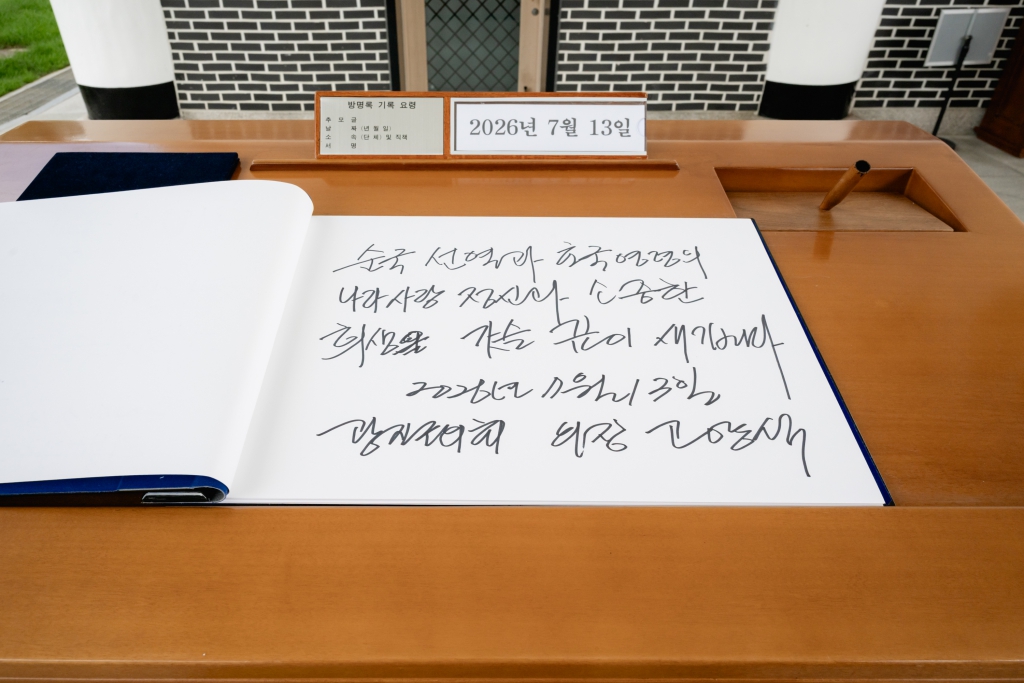 방명록 기록 요령
추 모 글
날 짜 (년 월 일)
소 속 (단 체) 및 직책
서 명
2026년 7월 13일
순국 선열과 호국영령의
나라사랑 정신과 소중한
희생을 가슴 깊이 새깁니다
2026년 7월 13일
광진구의회 의장 고양석